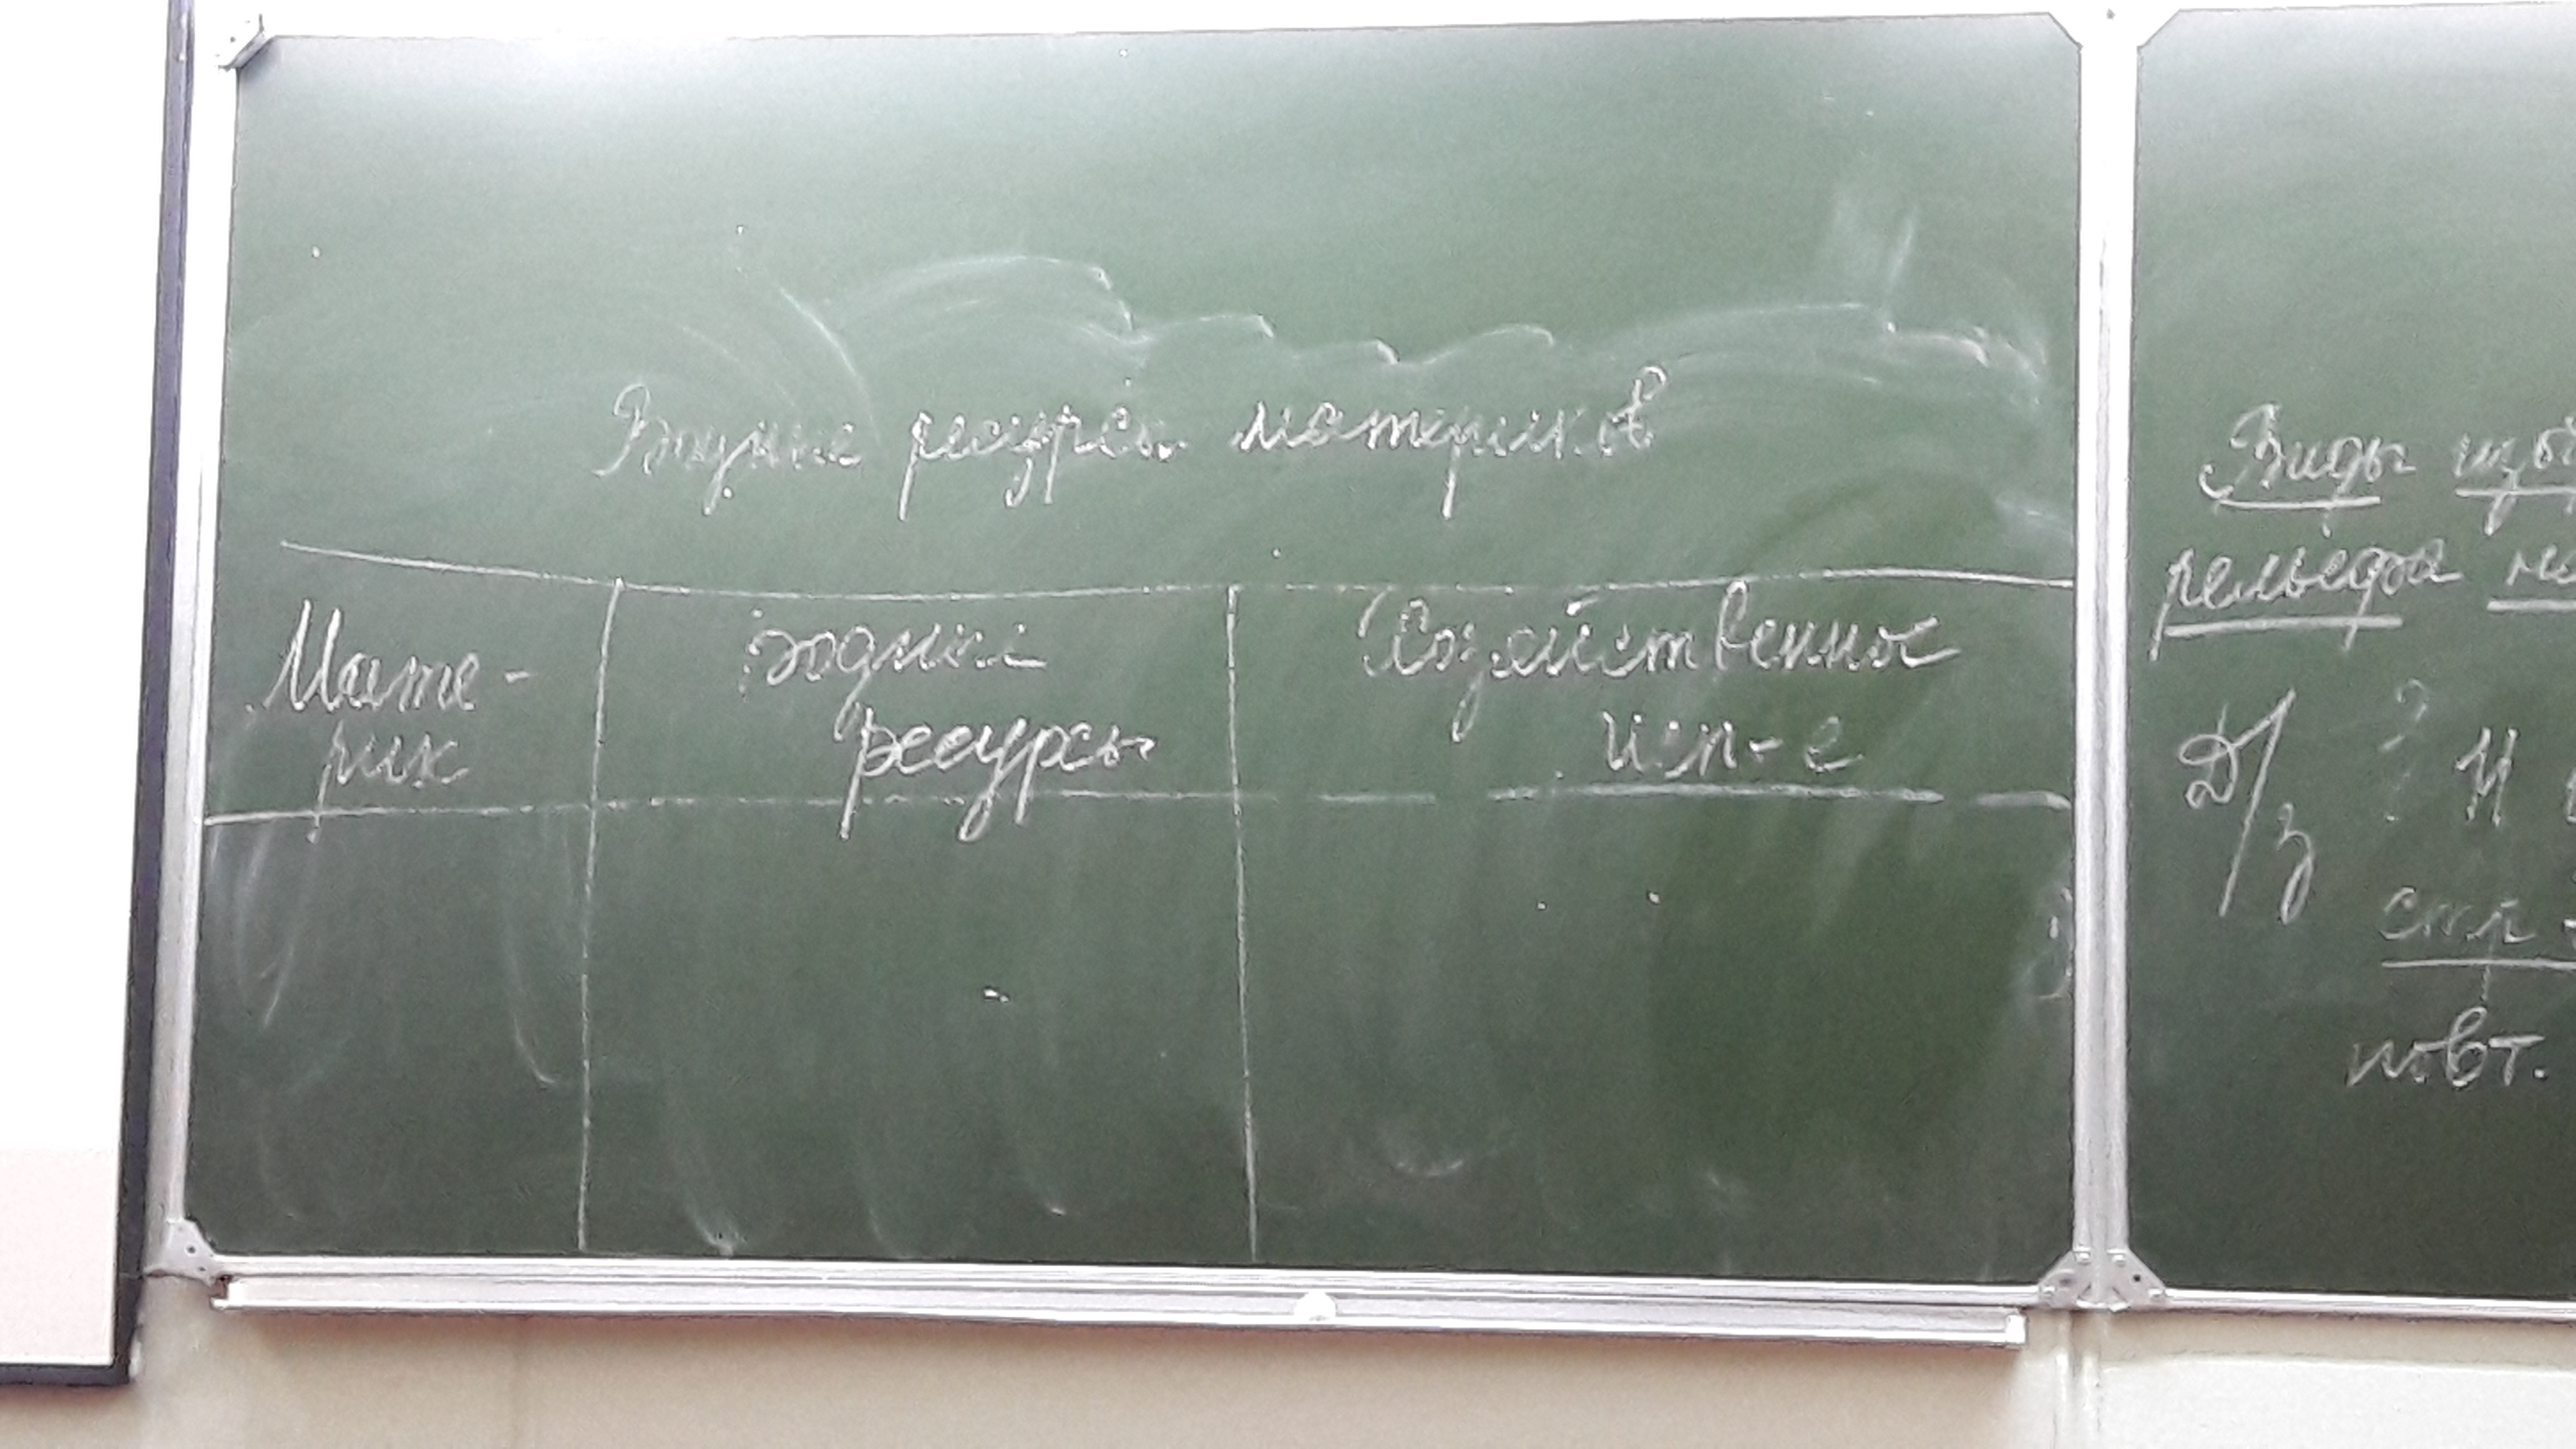 Водные ресурсы материков
Мате-
рик
Водные
ресурсы
Хозяйственное
исп-е
Виды изо
рельефа на
Д/з
стр
повт.